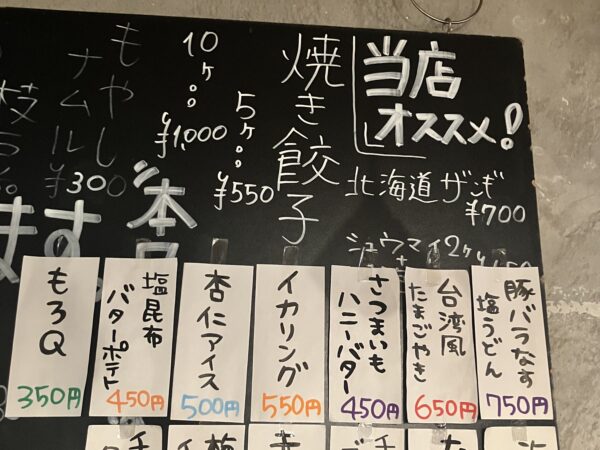 当店
オススメ!
北海道ザンギ
¥700
シュウマイ2ヶ
焼き餃子
5ヶ
¥550
10ヶ
¥1,000
もやし
ナムル
¥300
ます。
豚バラなす
塩うどん
750円
台湾風
たまごやき
650円
さつまいも
ハニーバター
450円
イカリング
550円
杏仁アイス
500円
塩昆布
バターポテト
450円
もろQ
350円